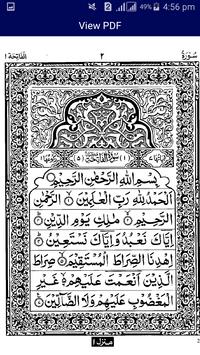 49% 4:56 pm
View PDF
الفاتحة ١
٢
سورة
بِسْمِ اللّٰهِ الرَّحْمٰنِ الرَّحِيْمِ
اَلْحَمْدُ لِلّٰهِ رَبِّ الْعٰلَمِيْنَ ۙ الرَّحْمٰنِ
الرَّحِيْمِ ۙ مٰلِكِ يَوْمِ الدِّيْنِ ۙ
اِيَّاكَ نَعْبُدُ وَاِيَّاكَ نَسْتَعِيْنُ ۙ
اِهْدِنَا الصِّرَاطَ الْمُسْتَقِيْمَ ۙ صِرَاطَ
الَّذِيْنَ اَنْعَمْتَ عَلَيْهِمْ ۙ غَيْرِ
الْمَغْضُوْبِ عَلَيْهِمْ وَلَا الضَّآلِّيْنَ
منزل ١
2